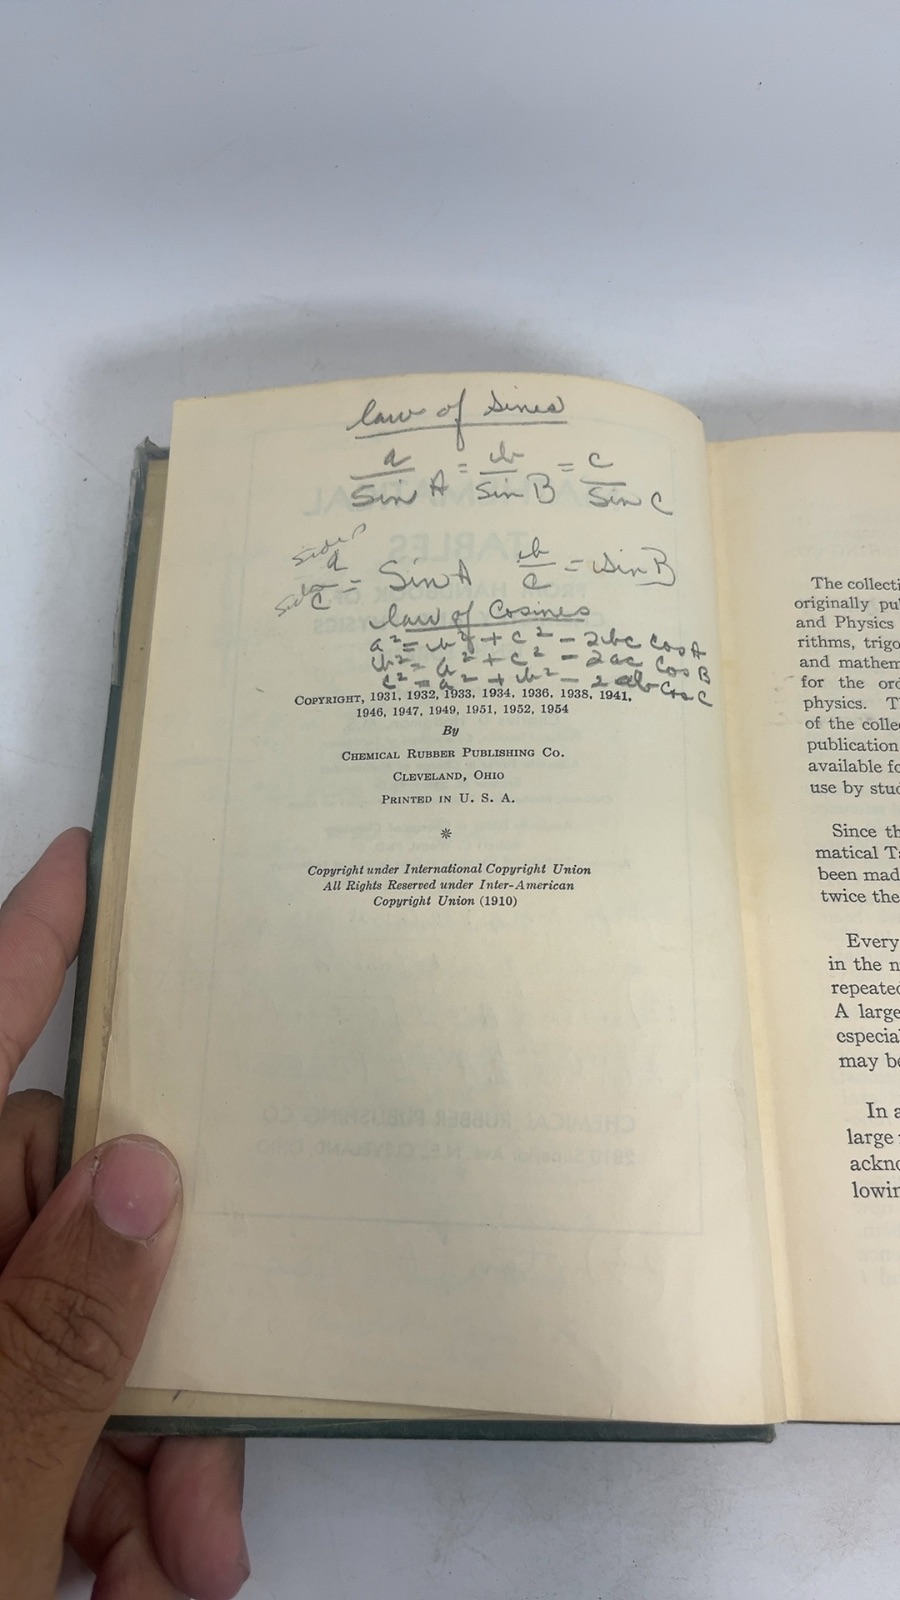 law of Sines
a/Sin A = b/Sin B = c/Sin C
Side a/Side c = Sin A   b/c = Sin B
law of Cosines
a² = b² + c² - 2bc Cos A
b² = a² + c² - 2ac Cos B
c² = a² + b² - 2ab Cos C
COPYRIGHT, 1931, 1932, 1933, 1934, 1936, 1938, 1941,
1946, 1947, 1949, 1951, 1952, 1954
By
CHEMICAL RUBBER PUBLISHING CO.
CLEVELAND, OHIO
PRINTED IN U. S. A.
*
Copyright under International Copyright Union
All Rights Reserved under Inter-American
Copyright Union (1910)
The collecti
originally pu
and Physics
rithms, trigo
and mathem
for the ord
physics. T
of the colle
publication
available fo
use by stud
Since th
matical Ta
been mad
twice the
Every
in the n
repeated
A large
especia
may be
In a
large
ackno
lowin